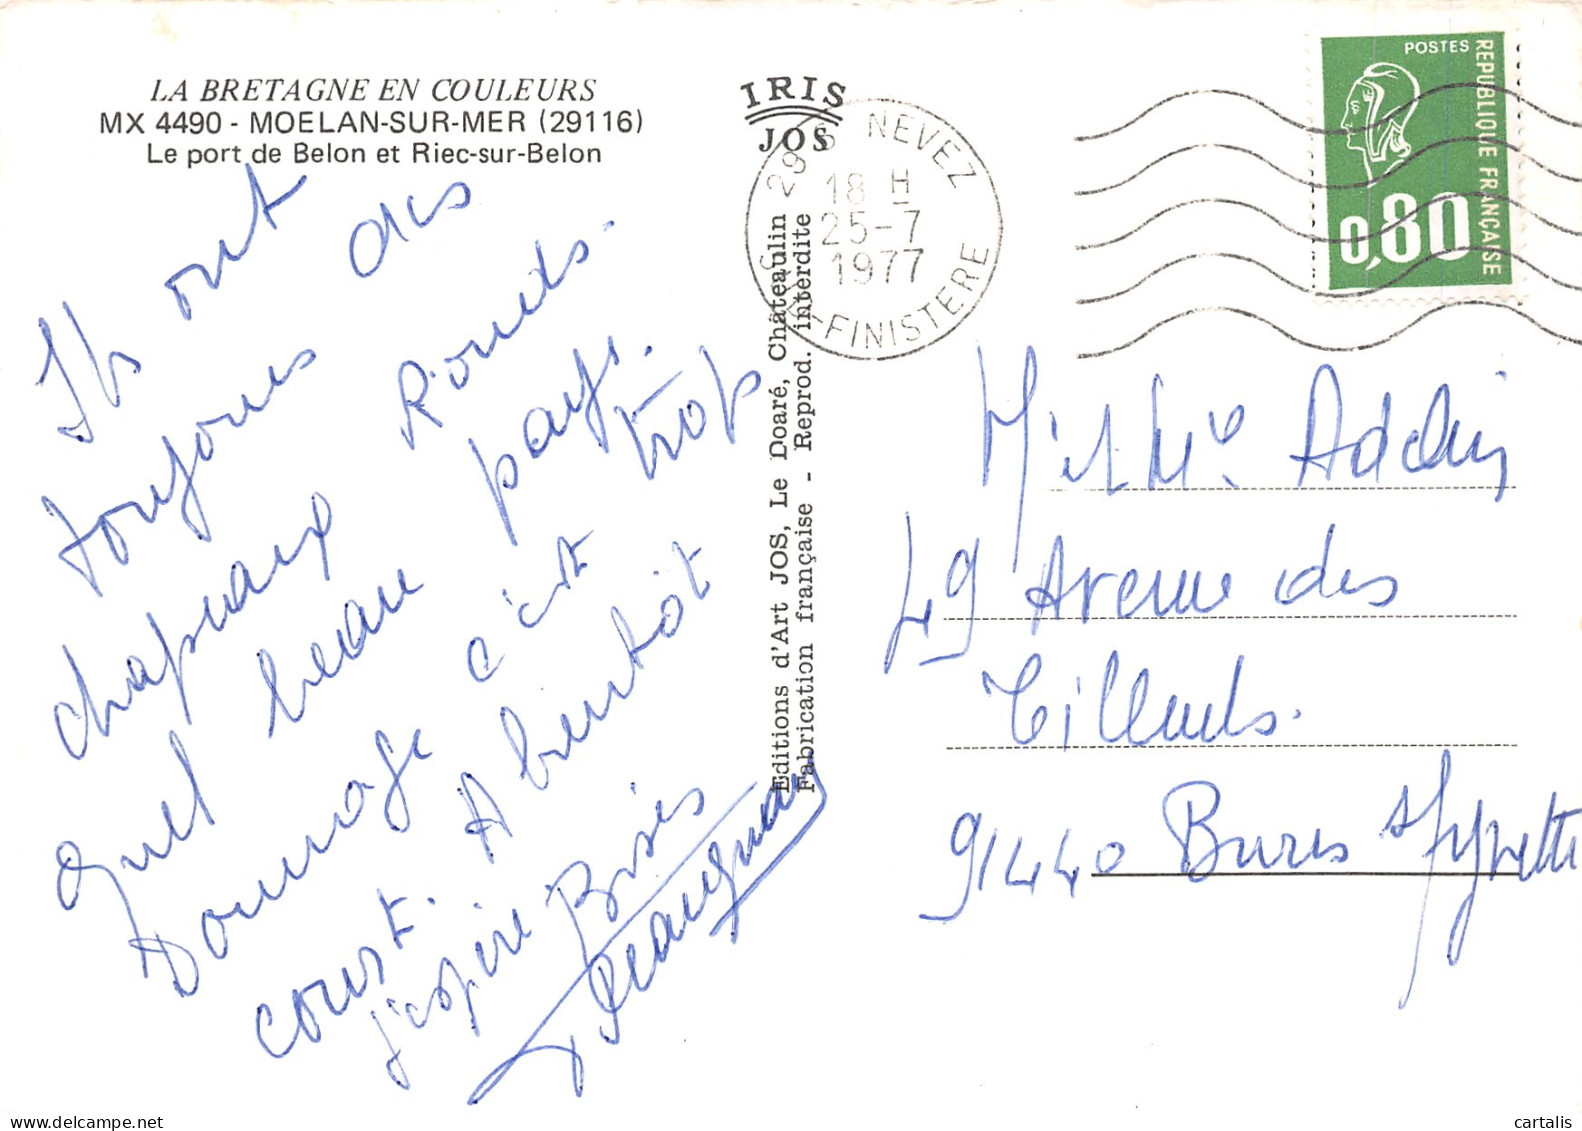 LA BRETAGNE EN COULEURS
MX 4490 - MOELAN-SUR-MER (29116)
Le port de Belon et Riec-sur-Belon
Ils ont
toujours des
chapeaux Ronds.
Quel beau pays.
Dommage c'est trop
court. A bientôt
j'espère Bises
IRIS
JOS
Editions d'Art JOS, Le Doaré, Châteaulin
Fabrication française - Reprod. interdite
NEVEZ
18 H
25-7
1977
FINISTERE
POSTES
REPUBLIQUE FRANÇAISE
0,80
Mr et Me
49 Avenue des
Tilleuls.
91440 Bures s/Yvette
cartalis